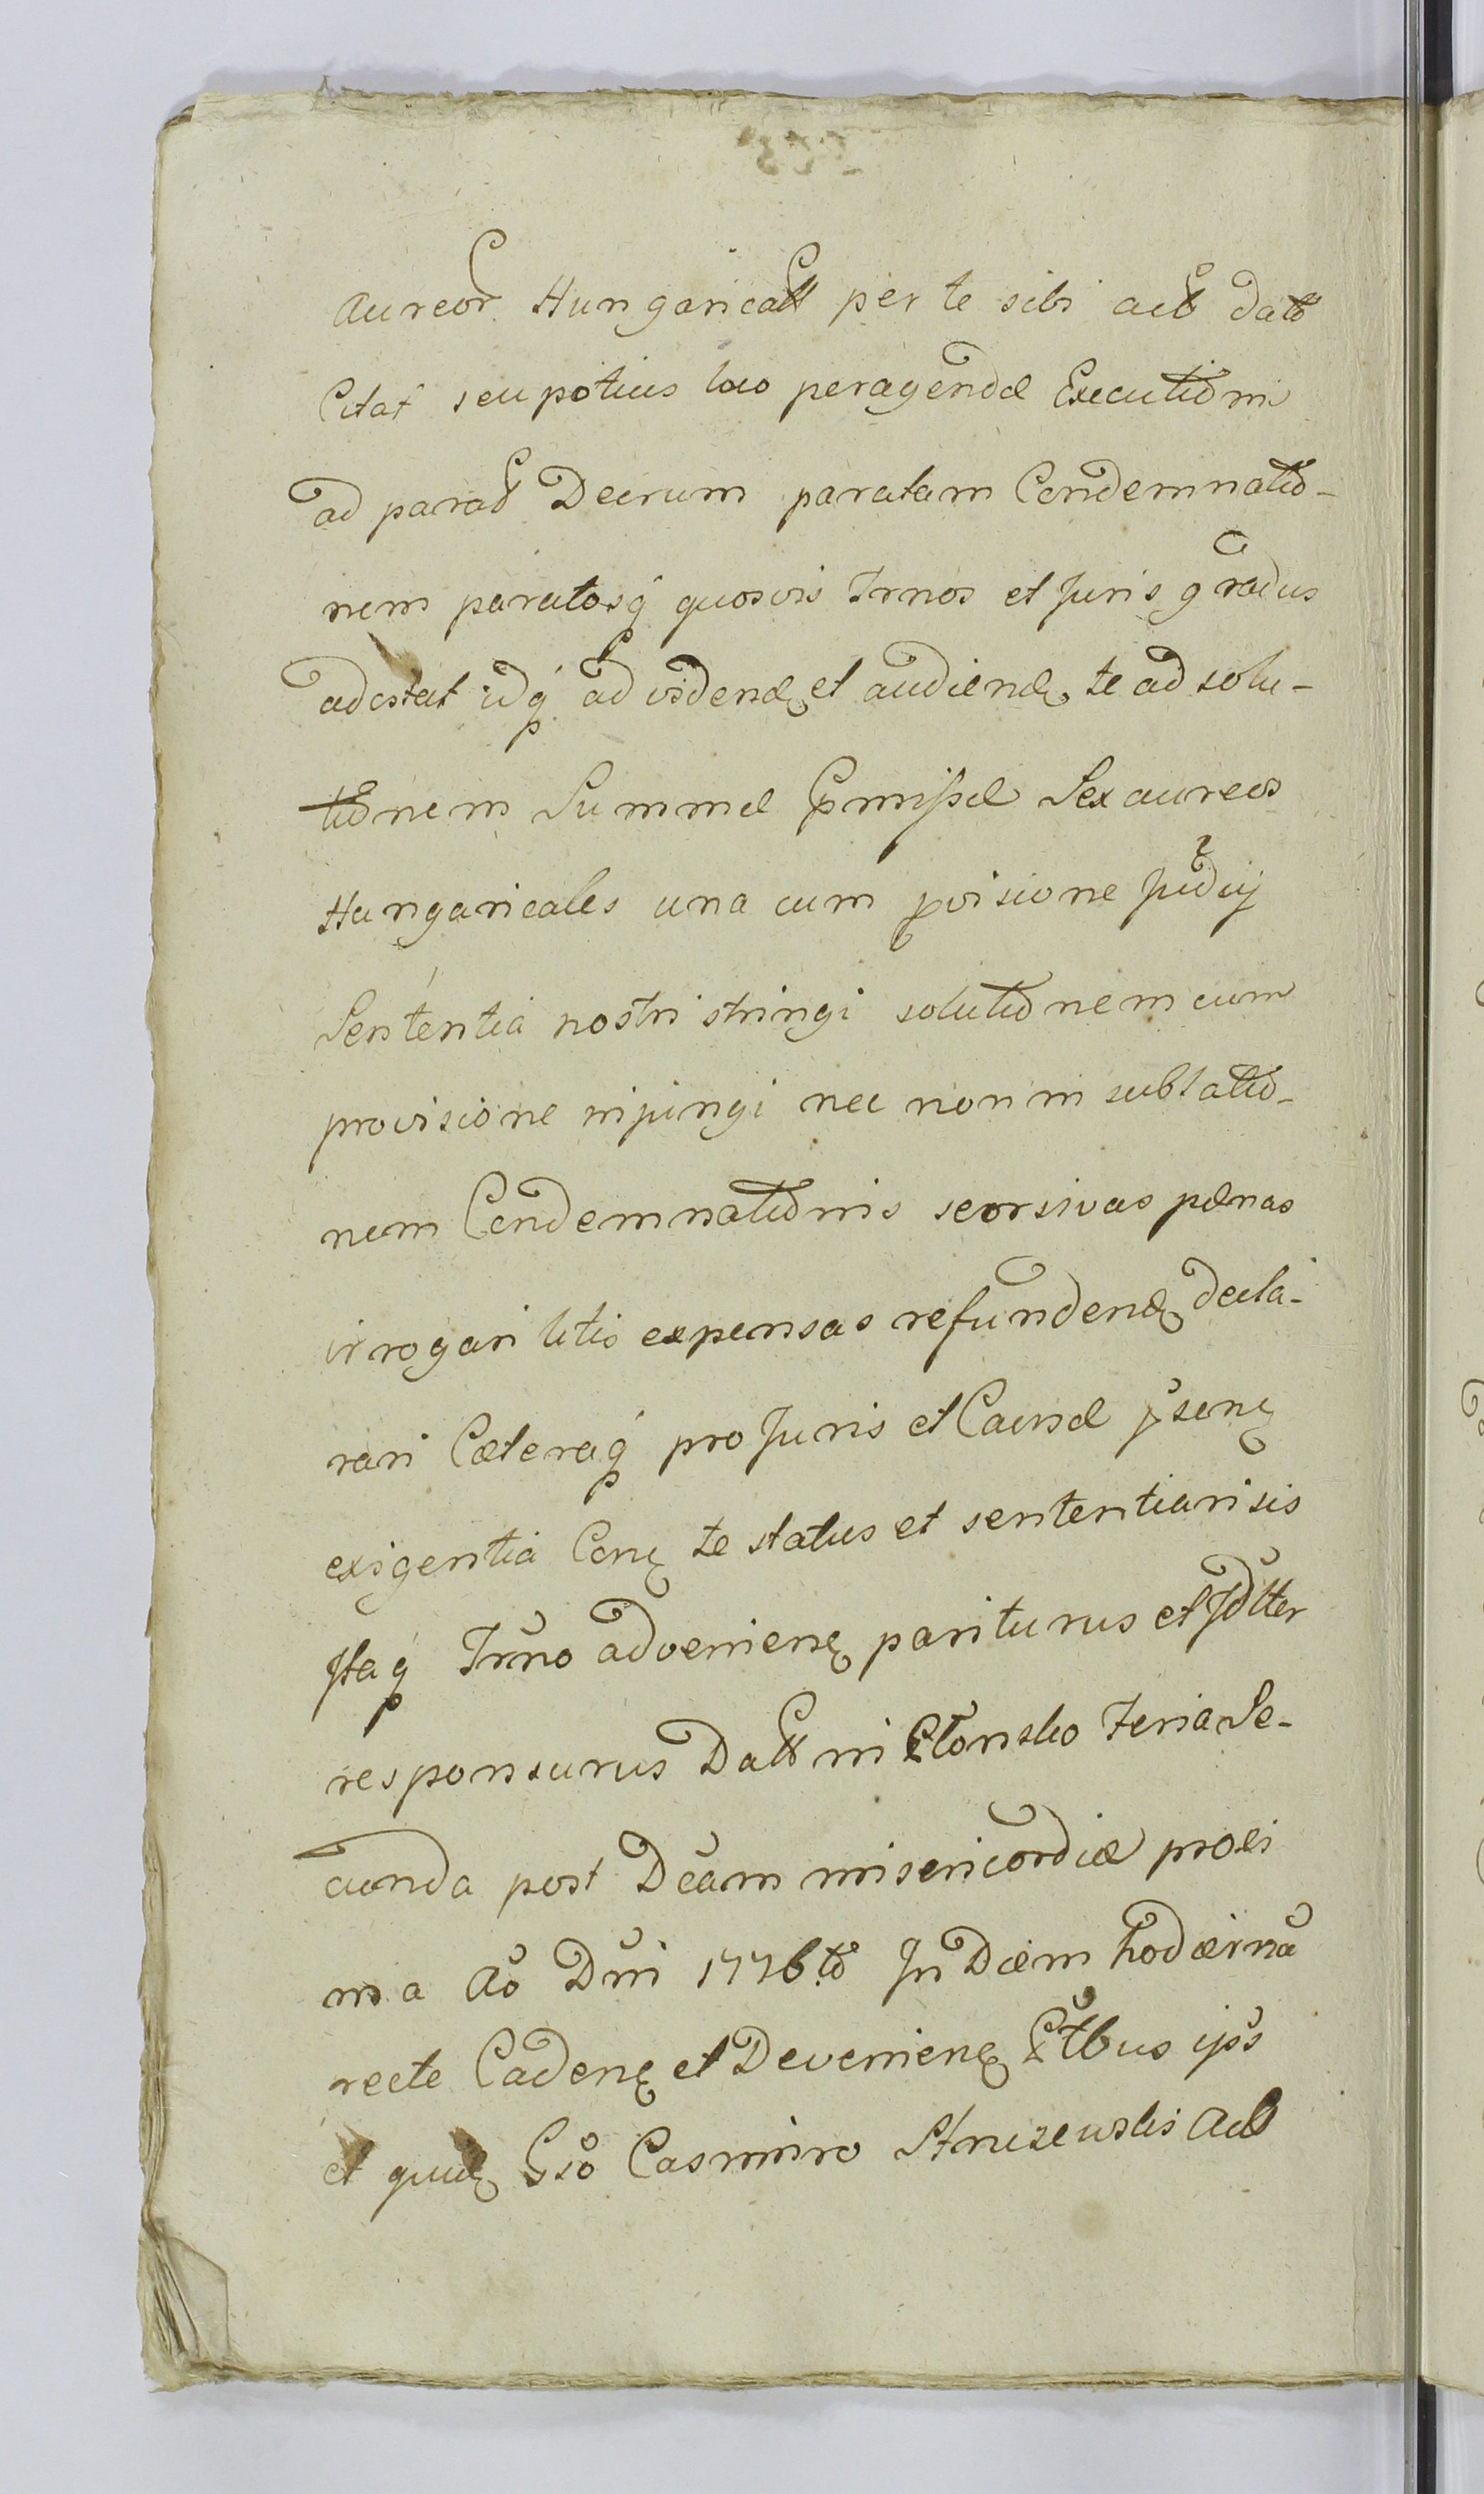 Aureor Hungaricall per te sibi act dato
Citat seu potius loco peragendæ Executioni
ad parat Decrum paratam Condemnatio-
nem paratosq quosvis Trnos et Juris gradus
adcitat idq ad videndę et audiendę te ad solu-
tionem Summæ præmissæ Sex aureos
Hungaricales una cum provisione Judicij
Sententia nostri stringi solutionem cum
provisione injungi nec non in sublatio-
nem Condemnationis seorsivas pænas
irrogari litis expensas refundendę decla-
rari Cæteraq pro Juris et Causæ psenę
exigentia Cenę te status et sententiari sis
Itaq Trño advenienę pariturus et Jdltter
responsurus Datt in Płonsko Feria Se-
cunda post Dcam misericordiæ proxi
ma Aõ Dñi 1776to In Diem hodiernã
recte Cadenę et Devenienę Ptbus ipś
et quidę Gsõ Casimiro Struszewski Act